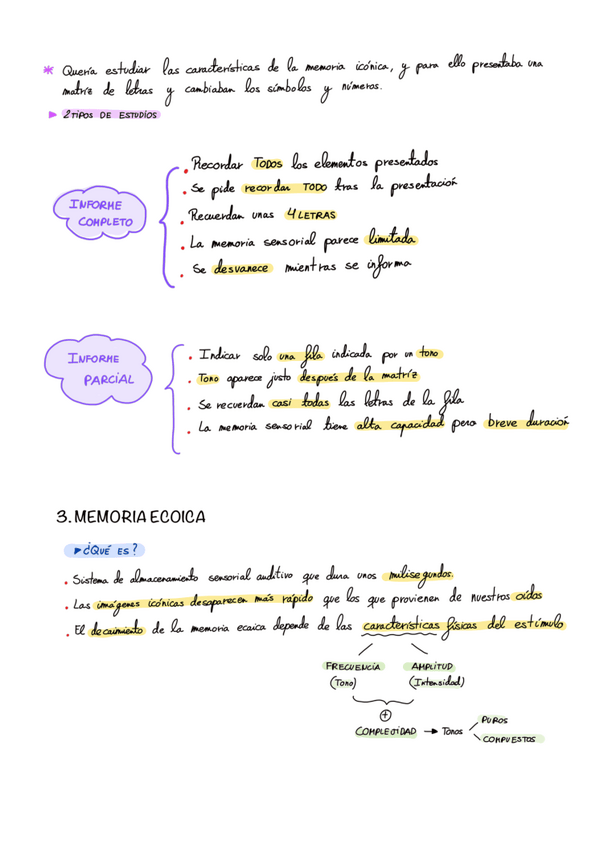 * Quería estudiar las características de la memoria icónica, y para ello presentaba una
matriz de letras y cambiaban los símbolos y números.
▶ 2 TIPOS DE ESTUDIOS
INFORME
COMPLETO
• Recordar TODOS los elementos presentados
• Se pide recordar TODO tras la presentación
• Recuerdan unas 4 LETRAS
• La memoria sensorial parece limitada
• Se desvanece mientras se informa
INFORME
PARCIAL
• Indicar solo una fila indicada por un tono
• Tono aparece justo después de la matriz
• Se recuerdan casi todas las letras de la fila
• La memoria sensorial tiene alta capacidad pero breve duración
3. MEMORIA ECOICA
▶ ¿QUÉ ES?
• Sistema de almacenamiento sensorial auditivo que dura unos milisegundos.
• Las imágenes icónicas desaparecen más rápido que los que provienen de nuestros oídos
• El decaimiento de la memoria ecoica depende de las características físicas del estímulo
FRECUENCIA AMPLITUD
(Tono) (Intensidad)
+
COMPLEJIDAD → TONOS
PUROS
COMPUESTOS